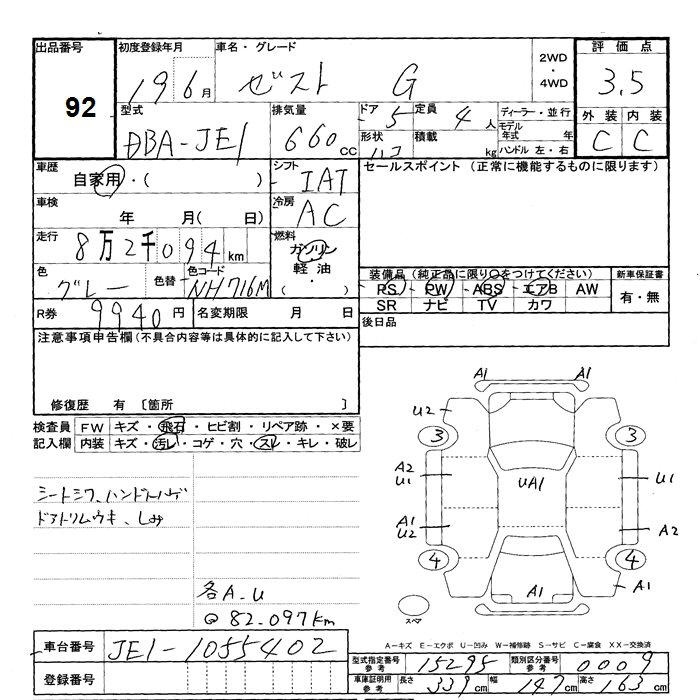 出品番号 初度登録年月 車名・グレード 2WD・4WD 評価点
92 19 6月 ゼスト G 3.5
型式 排気量 ドア 5 定員 4人 ディーラー・並行 外装 内装
DBA-JE1 660cc 形状 ハコ 積載 kg モデル年式 年 C C
ハンドル 左・右
車歴 自家用・( ) シフト IAT セールスポイント (正常に機能するものに限ります)
車検 年 月( 日) 冷房 AC
走行 8万2千094km 燃料 ガソリン
軽油
( )
色 グレー 色替 色コード NH716M
装備品 (純正品に限り○をつけてください) 新車保証書
PS PW ABS エアB AW 有・無
SR ナビ TV カワ
R券 9940円 名変期限 月 日 後日品
注意事項申告欄(不具合内容等は具体的に記入して下さい)
修復歴 有 〔箇所 〕
検査員 FW キズ・飛石・ヒビ割・リペア跡・×要
記入欄 内装 キズ・汚レ・コゲ・穴・スレ・キレ・破レ
シートシワ、ハンドルハゲ
ドアトリムウキ、しみ
各A.U
@82.097km
A1 A1
U2
3 3
A2
U1 UA1 U1
A1
U2 A2
4 4
A1 A1
スペア
A-キズ E-エクボ U-凹み W-補修跡 S-サビ C-腐食 XX-交換済
車台番号 JE1-1055402
型式指定番号 参考 15295 類別区分番号 参考 0009
登録番号
車庫証明用 参考 長さ 339cm 幅 147cm 高さ 163cm